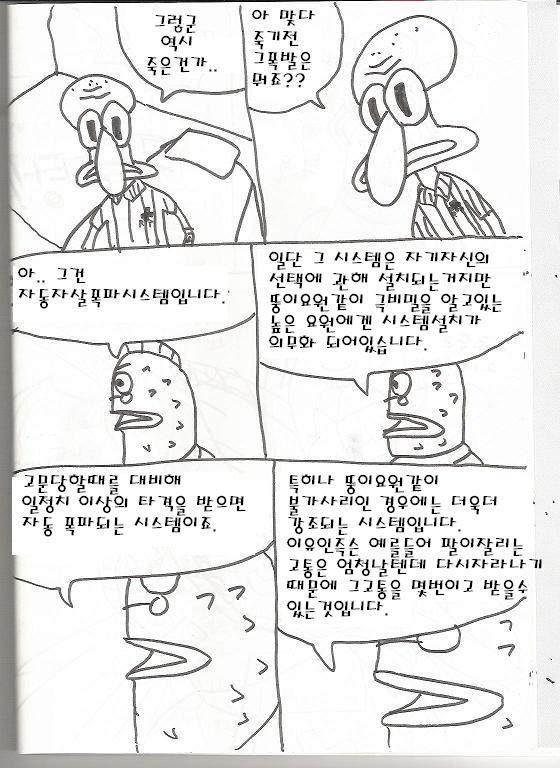 그렇군
역시
죽은건가..
아 맞다
죽기전
그폭발은
뭐죠??
아.. 그건
자동자살폭파시스템입니다.
일단 그 시스템은 자기자신의
선택에 관해 설치되는거지만
뚱이요원같이 극비밀을 알고있는
높은 요원에겐 시스템설치가
의무화 되어있습니다.
고문당할때를 대비해
일정치 이상의 타격을 받으면
자동 폭파되는 시스템이죠.
특히나 뚱이요원같이
불가사리인 경우에는 더욱더
강조되는 시스템입니다.
이유인즉슨 예를들어 팔이잘리는
고통은 엄청날텐데 다시자라나기
때문에 그고통을 몇번이고 받을수
있는것입니다.